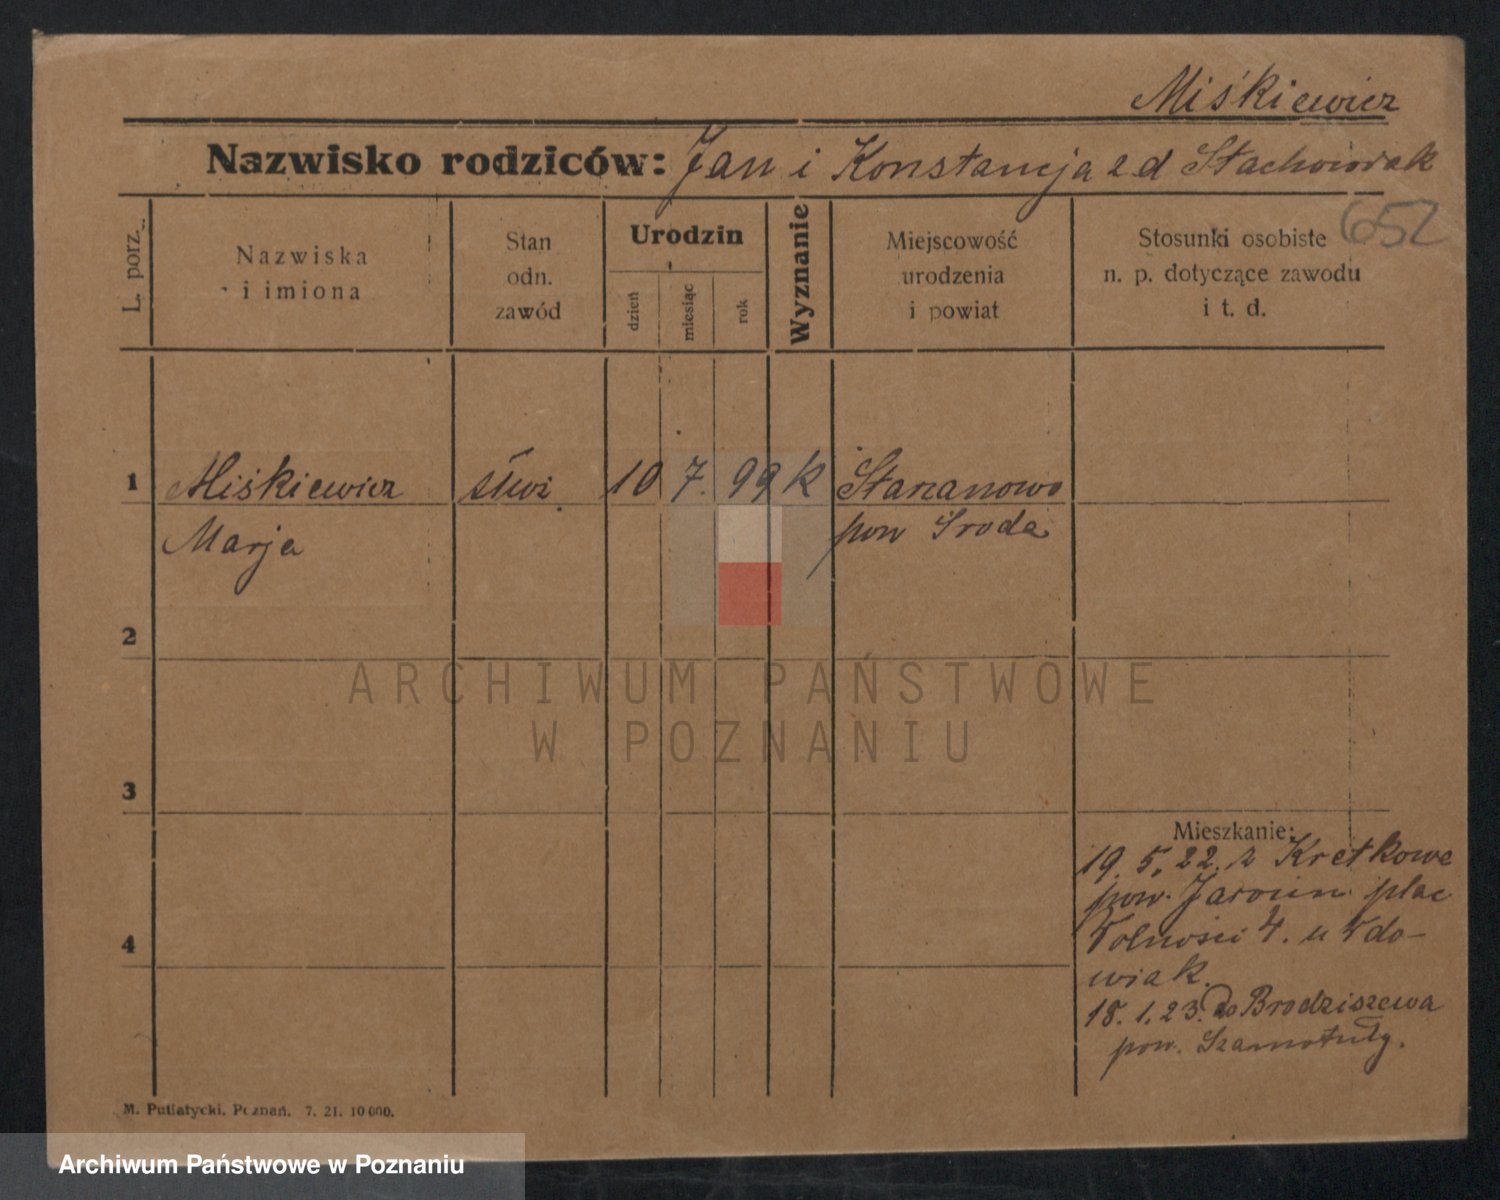 Miśkiewicz
Nazwisko rodziców: Jan i Konstancja z d Stachowiak
652
L. porz.
Nazwiska
i imiona
Stan
odn.
zawód
Urodzin
dzień
miesiąc
rok
Wyznanie
Miejscowość
urodzenia
i powiat
Stosunki osobiste
n. p. dotyczące zawodu
i t. d.
1 Miśkiewicz służ 10 7. 99 k Starzanowo
Marja pow Sroda
2
ARCHIWUM PAŃSTWOWE
W POZNANIU
3
Mieszkanie:
19. 5. 22. z Kretkowa
pow. Jarocin plac
Wolności 4. u Wdo-
wiak.
4
18. 1. 23. do Brodziszewa
pow. Szamotuły.
M. Putiatycki, Poznań. 7. 21. 10 000.
Archiwum Państwowe w Poznaniu